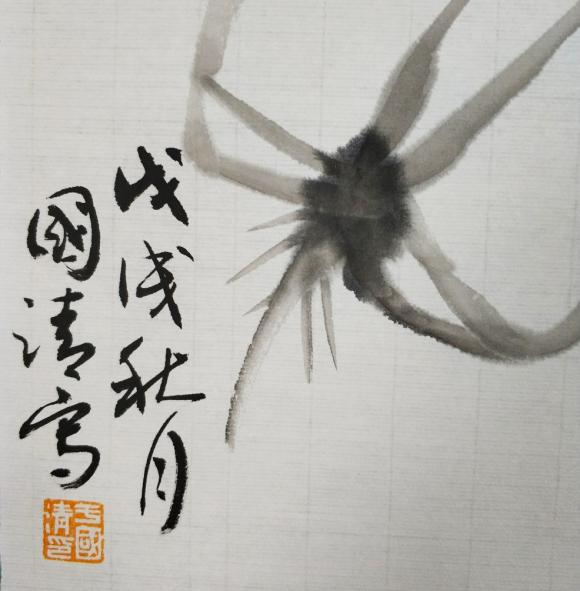 戊戌秋月
國清寫